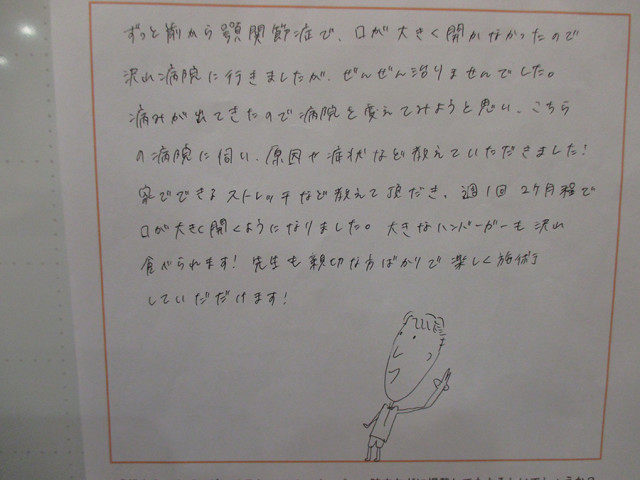 ずっと前から顎関節症で、口が大きく開かなかったので
沢山病院に行きましたが、ぜんぜん治りませんでした。
痛みが出てきたので病院を変えてみようと思い、こちら
の病院に伺い、原因や症状など教えていただきました！
家でできるストレッチなど教えて頂だき、週1回2ヶ月程で
口が大きく開くようになりました。大きなハンバーガーも沢山
食べられます！先生も親切な方ばかりで楽しく施術
していただけます！